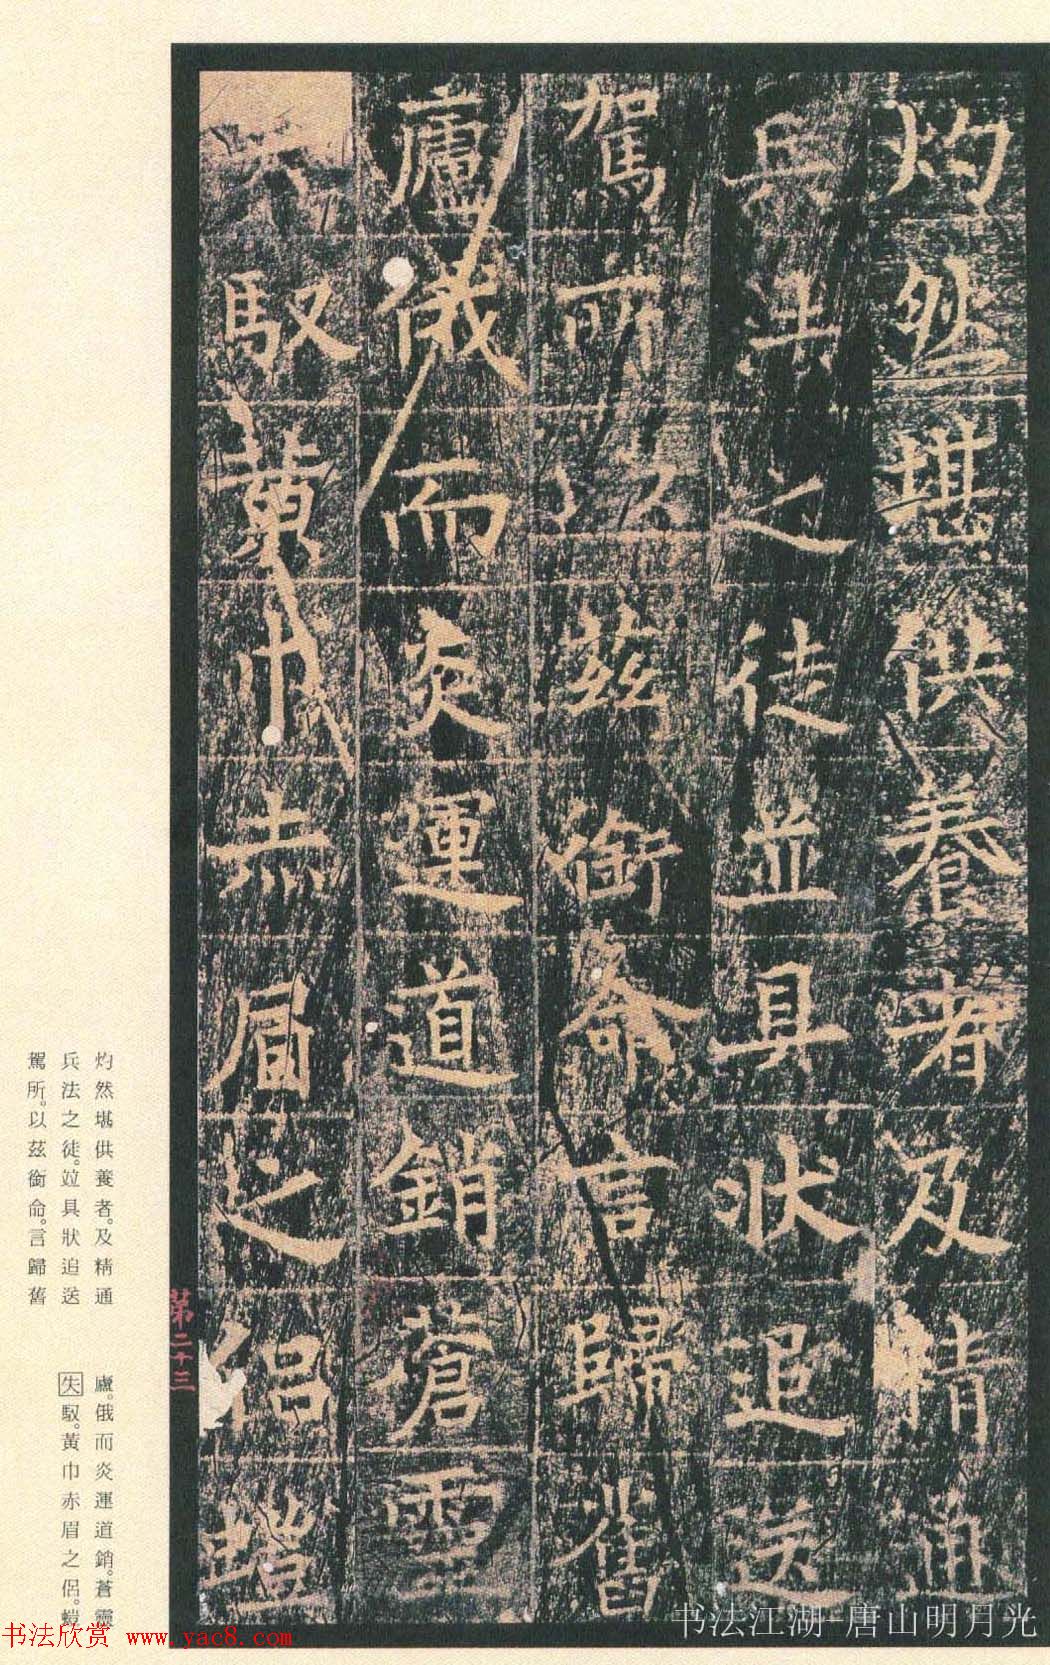 灼然堪供養者及精通
兵法之徒並具狀追送
駕所以茲銜命言歸舊
廬俄而炎運道銷蒼靈
失馭黃巾赤眉之侶螘
第二十三
灼然堪供養者。及精通
兵法之徒。竝具狀追送
駕所。以茲銜命。言歸舊
廬。俄而炎運道銷。蒼靈
失馭。黃巾赤眉之侶。螘
书法欣赏 www.yac8.com
书法江湖-唐山明月光